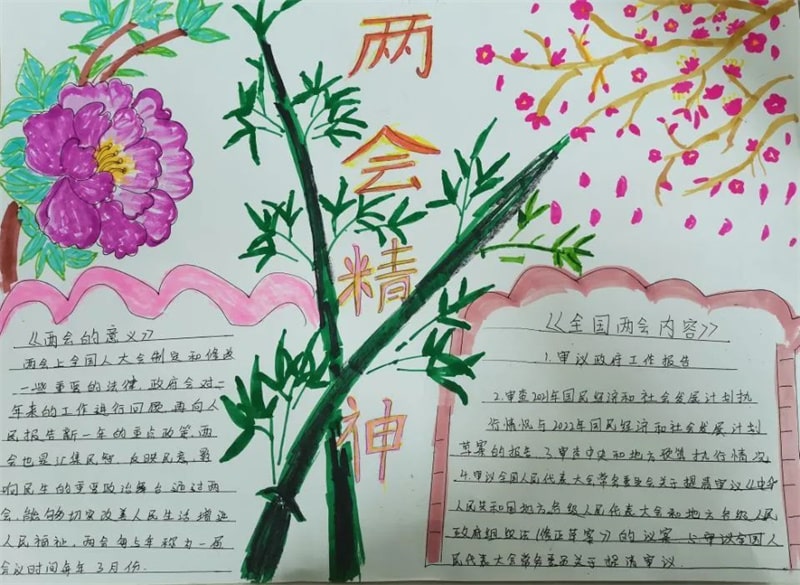 两
会
精
神
《两会的意义》
两会上全国人大会制定和修改
一些重要的法律,政府会对一
年来的工作进行回顾,再向人
民报告新一年的重点政策,两
会也是汇集民智,反映民意,影
响民生的重要政治舞台通过两
会,能够切实改善人民生活增进
人民福祉,两会每5年称为一届
会议时间每年3月份.
《全国两会内容》
1.审议政府工作报告
2.审查2021年国民经济和社会发展计划执
行情况与2022年国民经济和社会发展计划
草案的报告.3.审查中央和地方预算执行情况
4.审议全国人民代表大会常务委员会关于提请审议《中华
人民共和国地方各级人民代表大会和地方各级人民
政府组织法(修正草案)》的议案 5.审议全国人
民代表大会常务委员关于提请审议